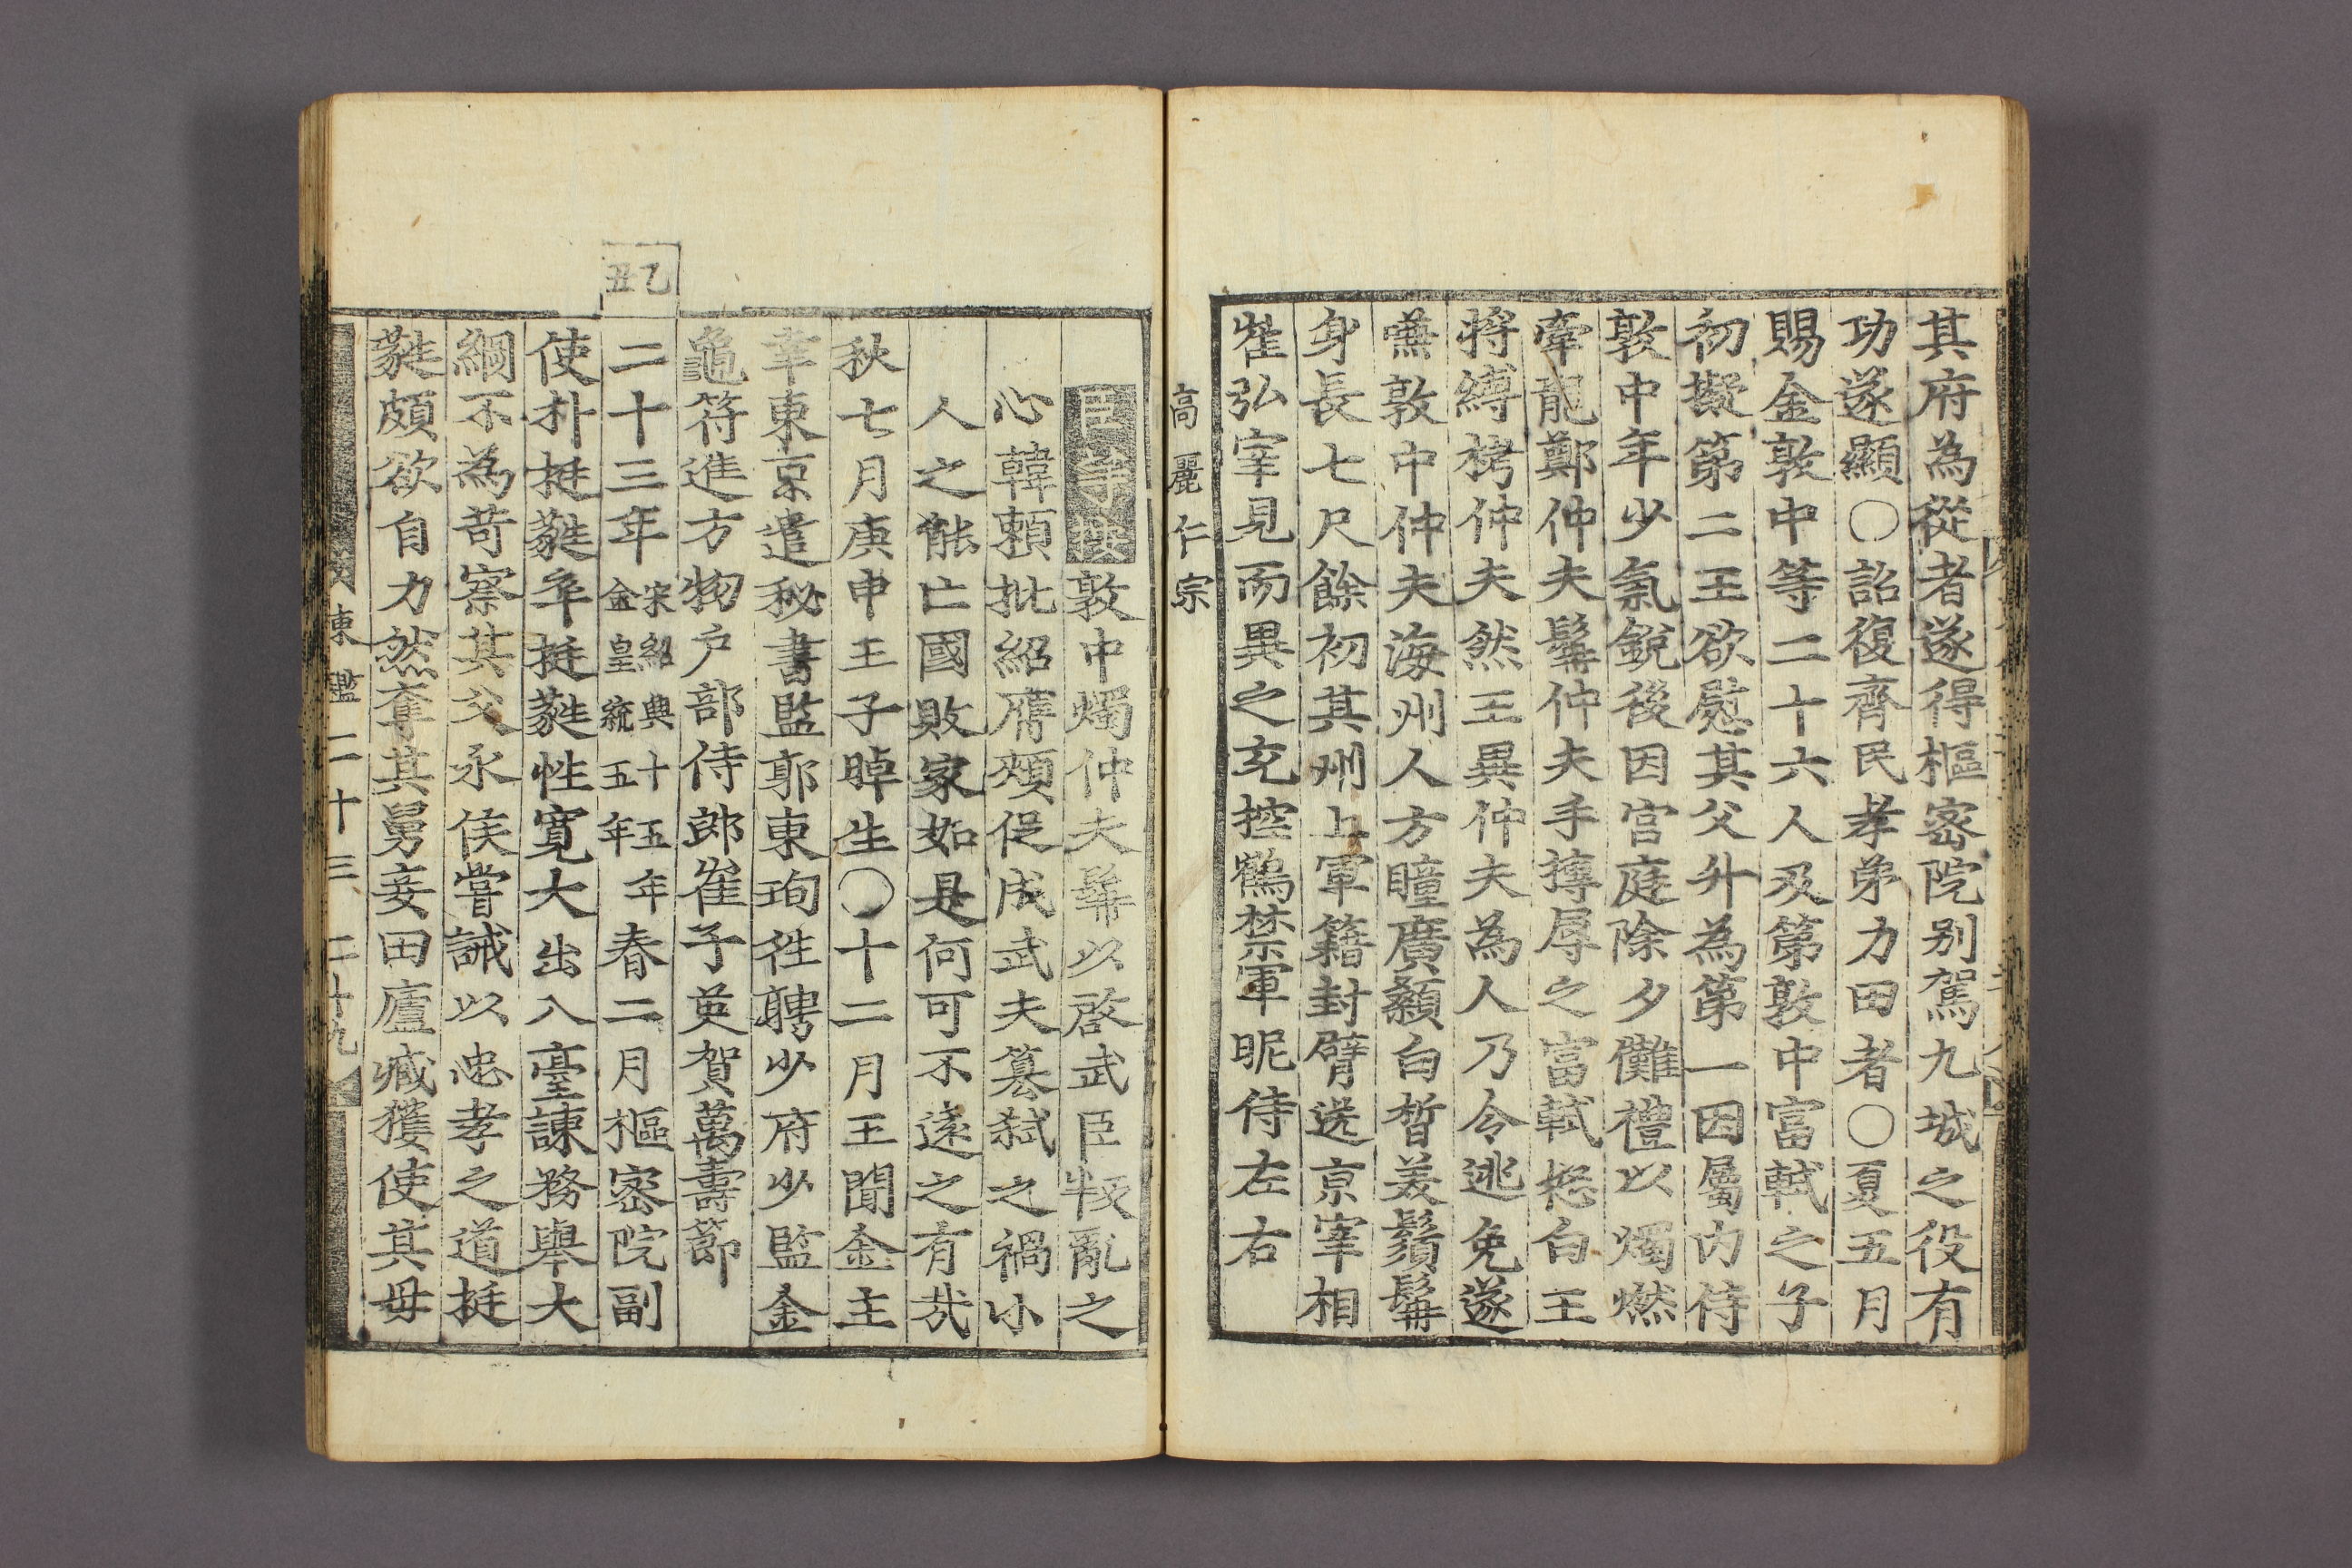 其府為從者遂得樞密院別駕九城之役有
功遂顯○詔復齊民孝弟力田者○夏五月
賜金敦中等二十六人及第敦中富軾之子
初擬第二王欲慰其父升為第一因屬內侍
敦中年少氣銳後因宮庭除夕儺禮以燭燃
牽龍鄭仲夫鬚仲夫手摶辱之富軾怒白王
將縛栲仲夫然王異仲夫為人乃令逃免遂
嗛敦中仲夫海州人方瞳廣顙白晳美鬚髯
身長七尺餘初其州上軍籍封臂送京宰相
崔弘宰見而異之充控鶴禁軍昵侍左右
高麗仁宗
臣等按敦中燭仲夫鬚以啓武臣叛亂之
心韓賴批紹膺頰促成武夫簒弑之禍小
人之能亡國敗家如是何可不遠之有㢤
秋七月庚申王子晫生○十二月王聞金主
幸東京遣秘書監郭東珣徃聘少府少監金
龜符進方物户部侍郎崔子英賀萬壽節
乙丑
二十三年宋紹興十五年金皇統五年春二月樞密院副
使朴挺蕤卒挺蕤性寬大出入臺諫務舉大
綱不為苛察其父永侯嘗誡以忠孝之道挺
蕤頗欲自力然奪其舅妾田廬臧獲使其母
東鑑二十三 二十九